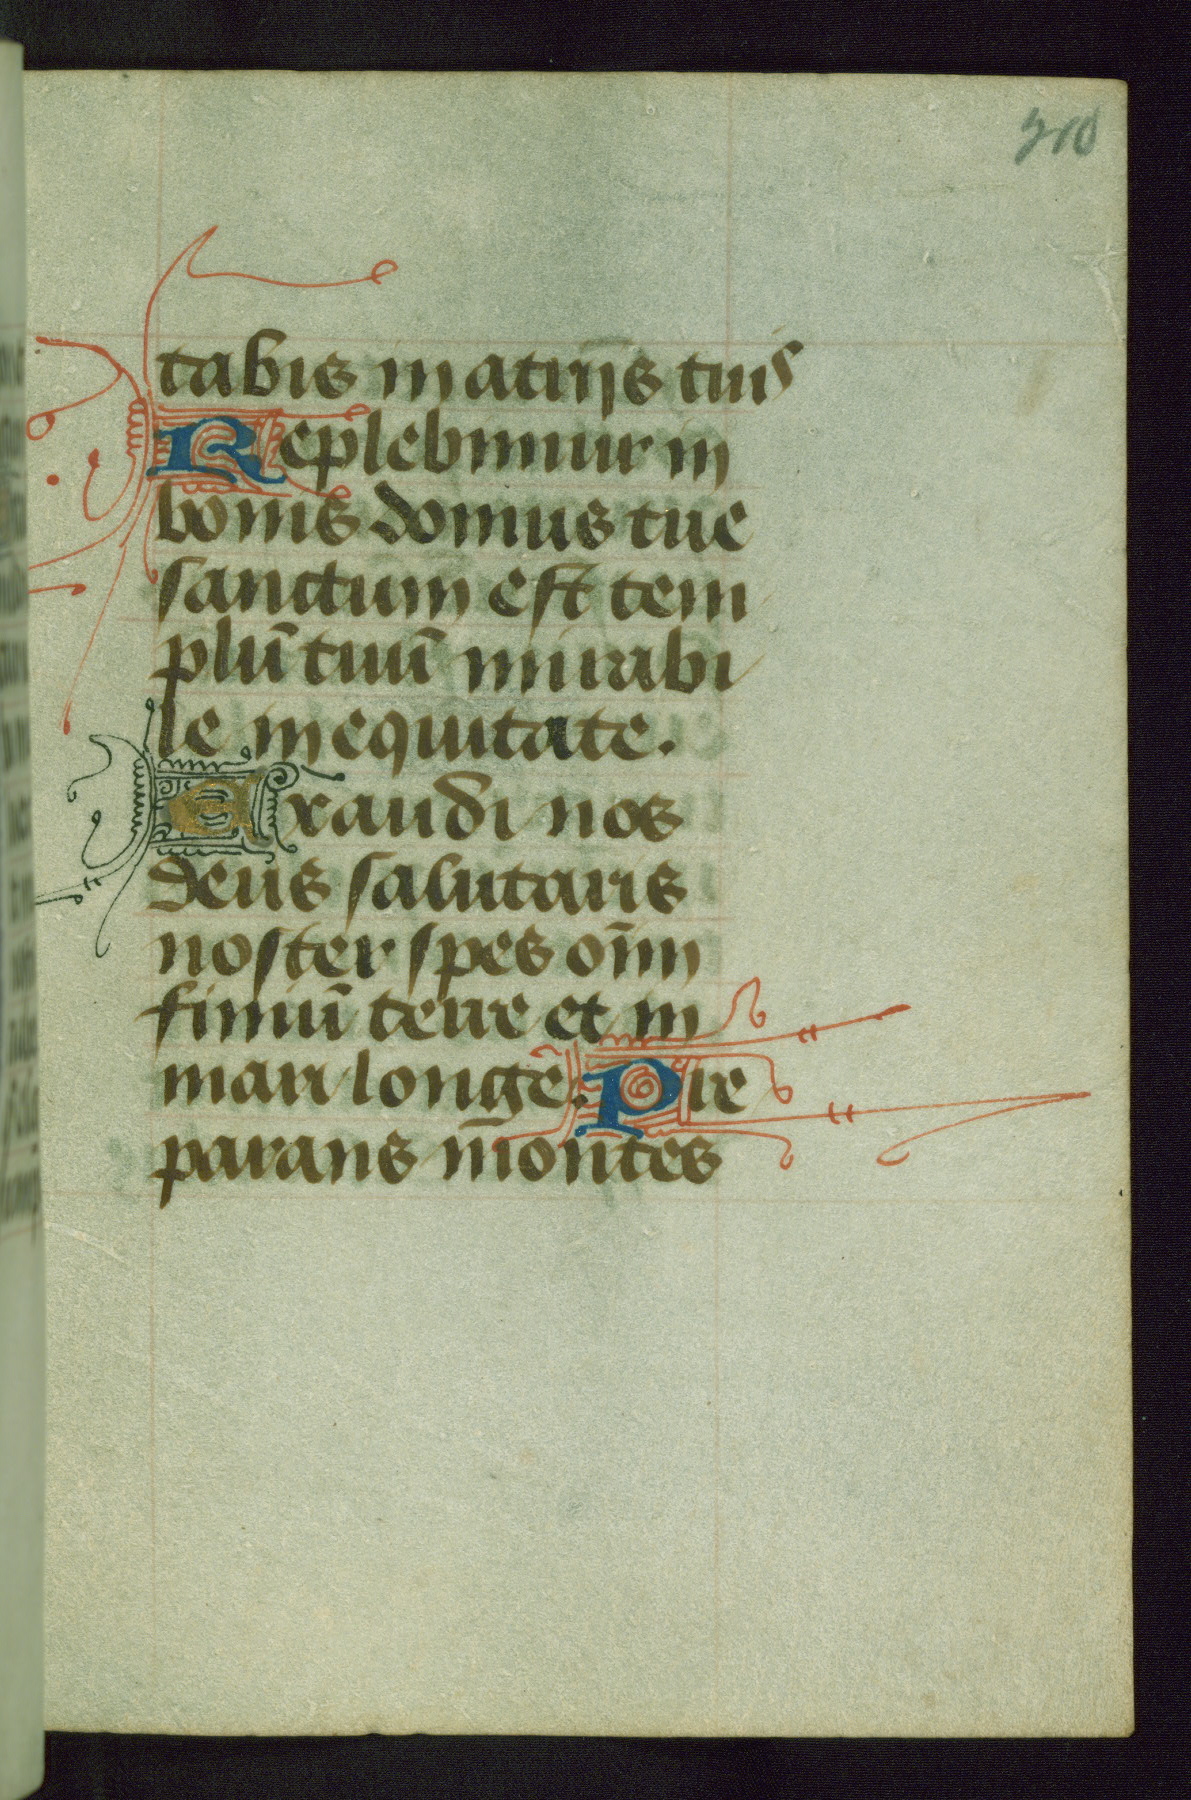 tabis in atrijs tuis
Replebimur in
bonis domus tue
sanctum est tem
plū tuū mirabi
le in equitate.
Exaudi nos
deus salutaris
noster spes om̄
finiū terre et in
mari longe. Pre
parans montes